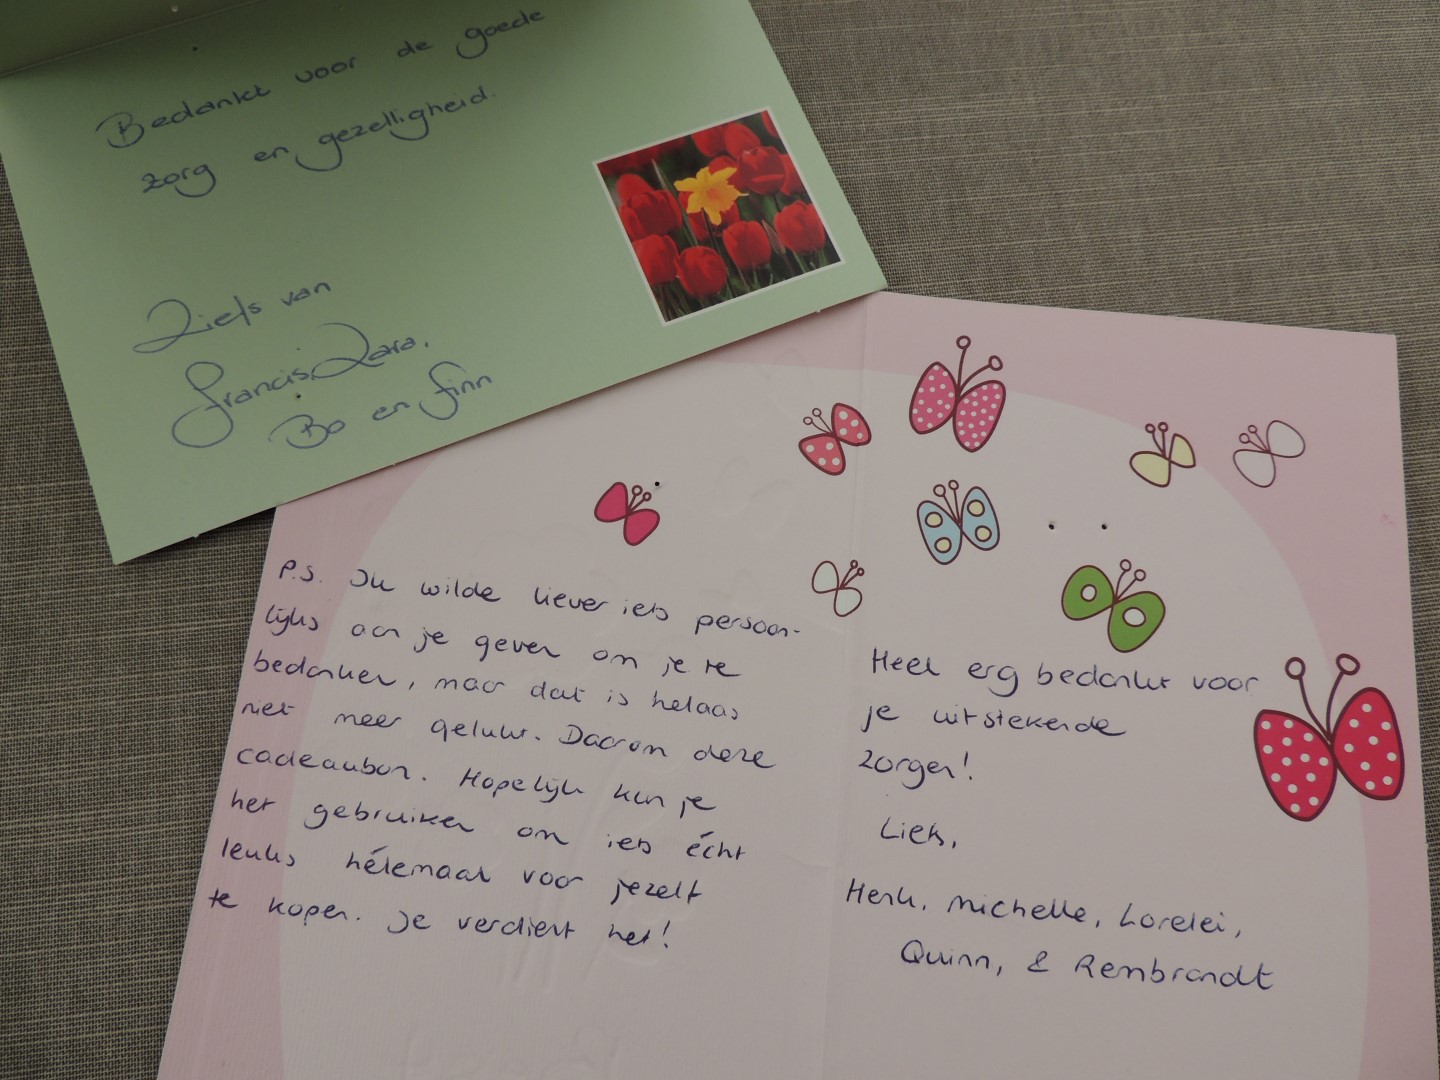 Bedankt voor de goede
zorg en gezelligheid.
Liefs van
Francis, Lara,
Bo en Finn
P.S. Ik wilde liever iets persoon-
lijks aan je geven om je te
bedanken, maar dat is helaas
niet meer gelukt. Daarom deze
cadeaubon. Hopelijk kun je
het gebruiken om iets écht
leuks hélemaal voor jezelf
te kopen. Je verdient het!
Heel erg bedankt voor
je uitstekende
zorgen!
Liefs,
Henk, Michelle, Lorelei,
Quinn, & Rembrandt